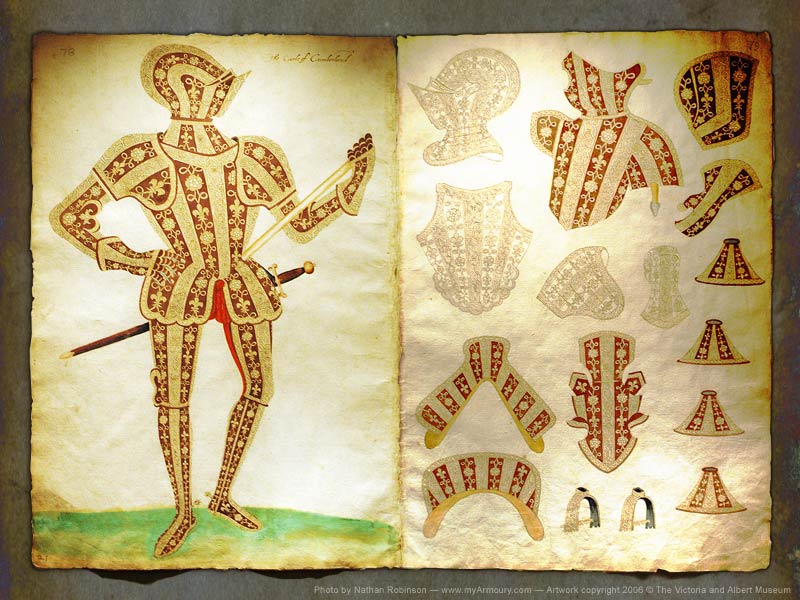 78
The Earle off Cumberland
Photo by Nathan Robinson — www.myArmoury.com — Artwork copyright 2006 © The Victoria and Albert Museum